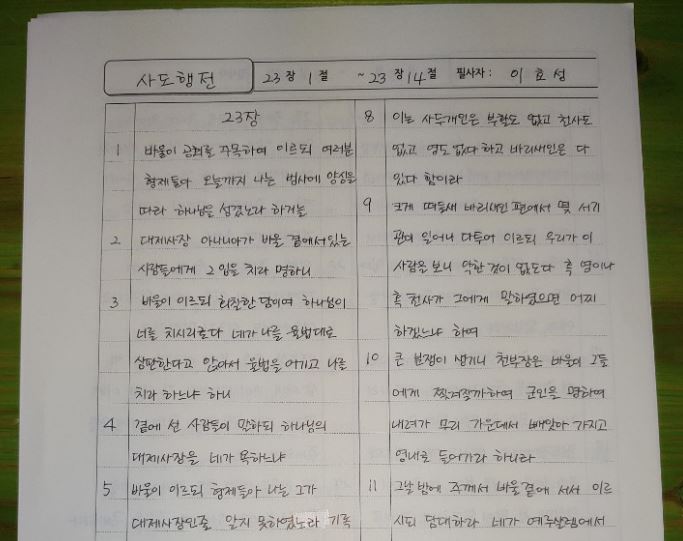 사도행전 23장 1절 ~23장 14절 필사자: 이효성
23장
1 바울이 공회를 주목하여 이르되 여러분
형제들아 오늘까지 나는 범사에 양심을
따라 하나님을 섬겼노라 하거늘
2 대제사장 아나니아가 바울 곁에서있는
사람들에게 그 입을 치라 명하니
3 바울이 이르되 회칠한 담이여 하나님이
너를 치시리로다 네가 나를 율법대로
심판한다고 앉아서 율법을 어기고 나를
치라 하느냐 하니
4 곁에 선 사람들이 말하되 하나님의
대제사장을 네가 욕하느냐
5 바울이 이르되 형제들아 나는 그가
대제사장인줄 알지 못하였노라 기록
8 이는 사두개인은 부활도 없고 천사도
없고 영도 없다 하고 바리새인은 다
있다 함이라
9 크게 떠들새 바리새인 편에서 몇 서기
관이 일어나 다투어 이르되 우리가 이
사람을 보니 악한 것이 없도다 혹 영이나
혹 천사가 그에게 말하였으면 어찌
하겠느냐 하여
10 큰 분쟁이 생기니 천부장은 바울이 그들
에게 찢겨질까하여 군인을 명하여
내려가 무리 가운데서 빼앗아 가지고
영내로 들어가라 하니라
11 그날 밤에 주께서 바울 곁에 서서 이르
시되 담대하라 네가 예루살렘에서